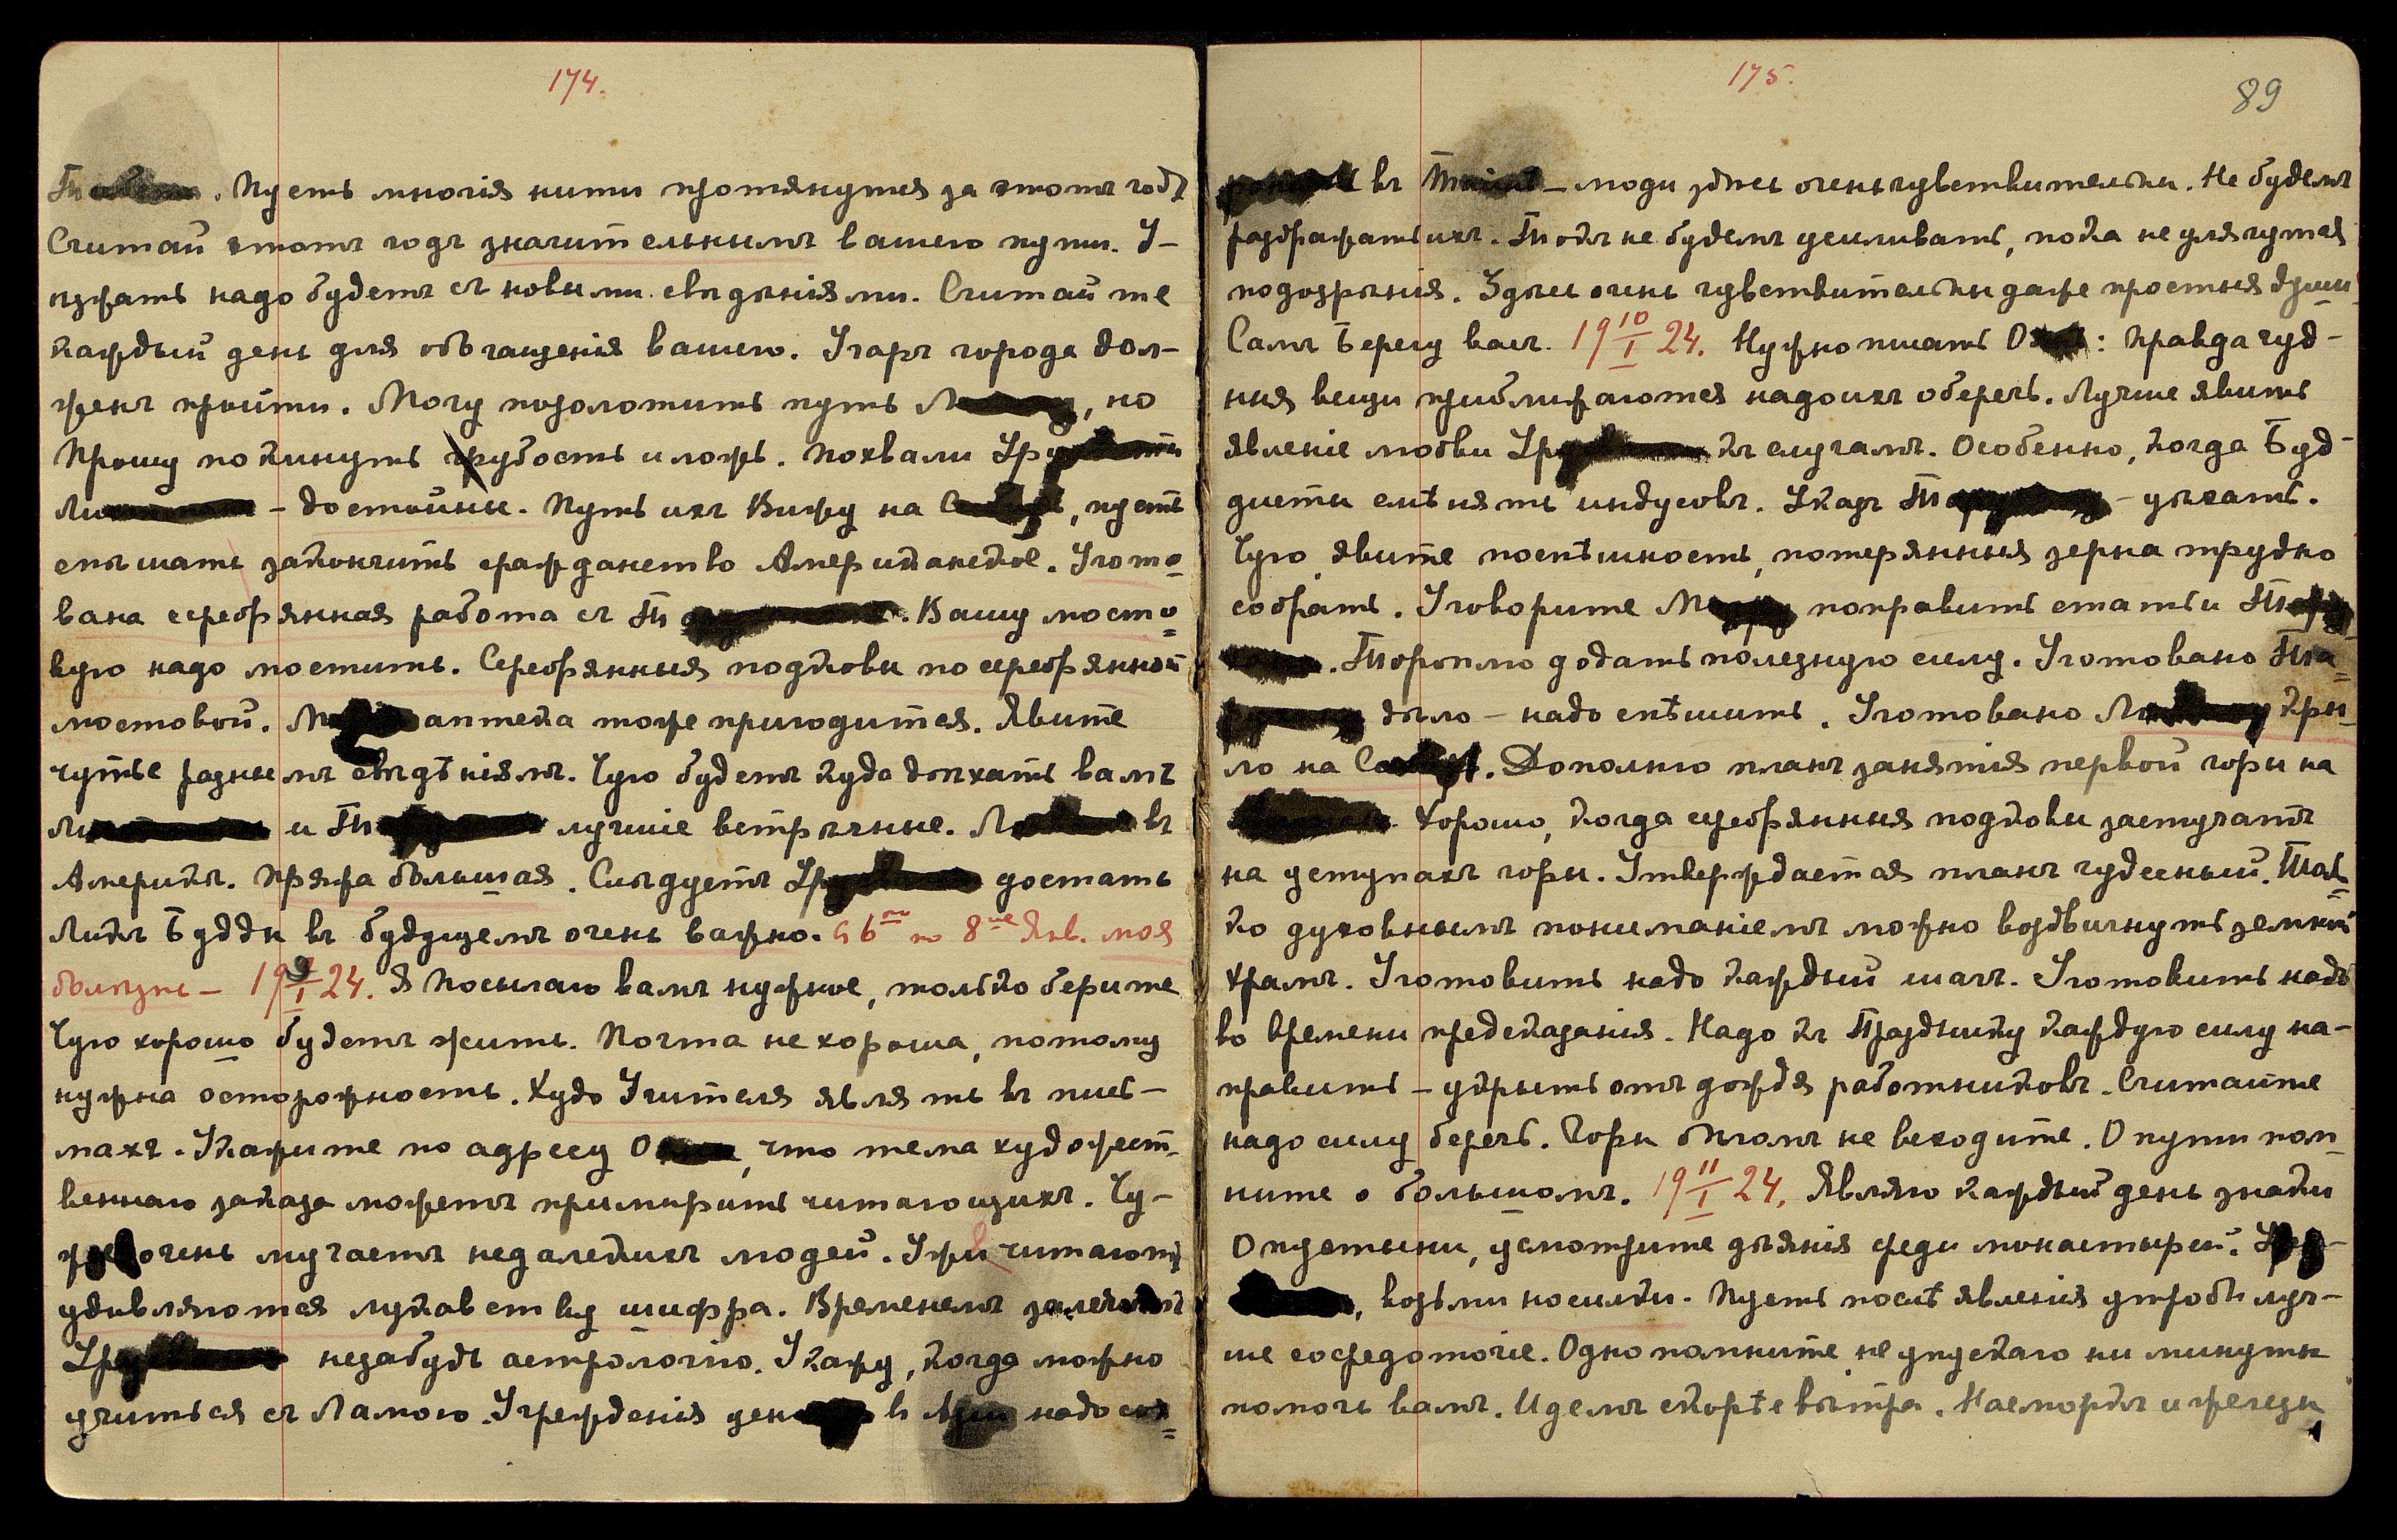 174.
Пусть многія нити протянутся за этотъ годъ
Считай этотъ годъ значительнымъ вашего пути. У-
езжать надо будетъ съ новыми свѣдѣніями. Считайте
каждый день для обогащенія вашего. Угаръ города дол-
женъ пройти. Могу позолотить путь но
Прошу покинуть грубость и ложь. Похвали
– достойны. Путь ихъ Вижу на пусть
спѣшатъ закончить гражданство Американское. Угото-
вана серебрянная работа съ Вашу мосто-
вую надо мостить. Серебрянныя подковы по серебрянной
мостовой. аптека тоже пригодится. Явите
чутье разнымъ свѣдѣніямъ. Чую будетъ куда доѣхать вамъ
и лучшіе встрѣчные. въ
Америкѣ. Пряжа большая. Слѣдуетъ достать
Ликъ Будды въ будущемъ очень важно. Съ 6го по 8ое Янв. моя
болѣзнь – 19 9/I 24. Я Посылаю вамъ нужное, только берите
Чую хорошо будетъ жить. Почта не хороша, потому
нужна осторожность. Худо Учителя являть въ пись-
махъ. Укажите по адресу что тема художест-
веннаго заказа можетъ примирить читающихъ. Чу-
очень мучаетъ недалекихъ людей. читаютъ
удивляются лукавству шифра. Временемъ
незабудь астрологію. Укажу, когда можно
учиться съ Ламою. Учрежденія въ надо
175.
89
въ – люди здѣсь очень чувствительны. Не будемъ
раздражать ихъ. Токъ не будемъ усиливать, пока не улягутся
подозрѣнія. Здѣсь очень чувствительны даже простыя души
Самъ Берегу васъ. 19 10/I 24. Нужно писать : Правда чуд-
ныя вещи приближаются надо ихъ оберечь. Лучше явить
явленіе любви къ случаямъ. Особенно, когда Буд-
дисты смѣнятъ индусовъ. Указъ – уѣхать.
Чую явите поспѣшность, потерянныя зерна трудно
собрать. Уговорите поправить статьи
Тороплю додать полезную силу. Уготовано
дѣло – надо спѣшить. Уготовано кры-
ло на Дополню планъ занятія первой горы на
Хорошо, когда серебрянныя подковы застучатъ
на уступахъ горы. Утверждается планъ чудесный. Толь-
ко духовнымъ пониманіемъ можно воздвигнуть земной
храмъ. Уготовить надо каждый шагъ. Уготовить надо
во времени предсказанія. Надо къ Празднику каждую силу на-
править – укрыть отъ дождя работниковъ. Считайте
надо силу беречь. Горы бѣгомъ не всходите. О пути пом-
ните о большомъ. 19 11/I 24. Являю каждый день знаки
О пустыни, усмотрите дѣянія среди монастырей.
возьми носилки. Пусть послѣ явленія утробы луч-
ше сосредоточіе. Одно помните не упускаю ни минуты
помочь вамъ. Идемъ скорѣе вѣтра.